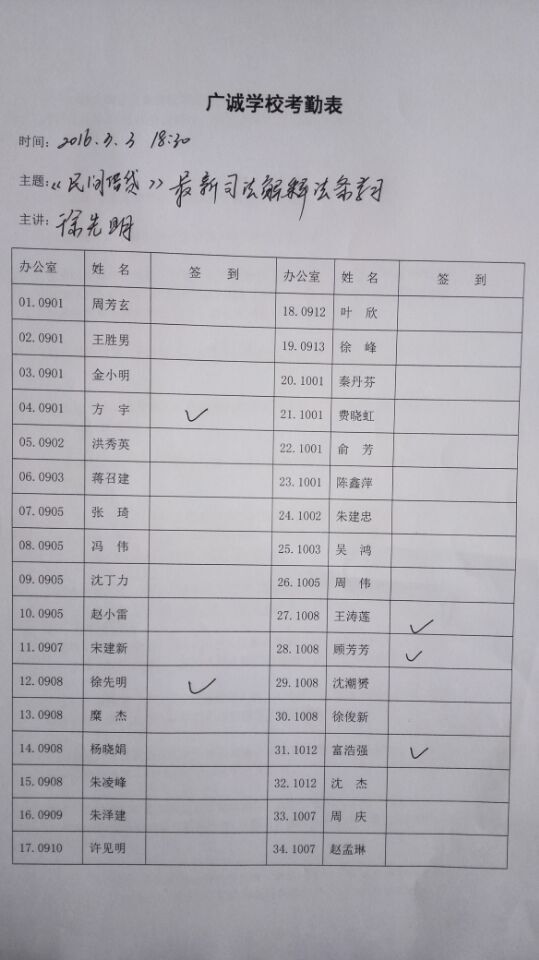 广诚学校考勤表
时间: 2016.3.3 18:30
主题:《民间借贷》最新司法解释法条学习
主讲: 徐先明
办公室 姓 名 签 到 办公室 姓 名 签 到
01.0901 周芳玄 18.0912 叶 欣
02.0901 王胜男 19.0913 徐 峰
03.0901 金小明 20.1001 秦丹芬
04.0901 方 宇 ✓ 21.1001 费晓虹
05.0902 洪秀英 22.1001 俞 芳
06.0903 蒋召建 23.1001 陈鑫萍
07.0905 张 琦 24.1002 朱建忠
08.0905 冯 伟 25.1003 吴 鸿
09.0905 沈丁力 26.1005 周 伟
10.0905 赵小雷 27.1008 王涛莲 ✓
11.0907 宋建新 28.1008 顾芳芳 ✓
12.0908 徐先明 ✓ 29.1008 沈潮赟
13.0908 糜 杰 30.1008 徐俊新
14.0908 杨晓娟 31.1012 富浩强 ✓
15.0908 朱凌峰 32.1012 沈 杰
16.0909 朱泽建 33.1007 周 庆
17.0910 许见明 34.1007 赵孟琳